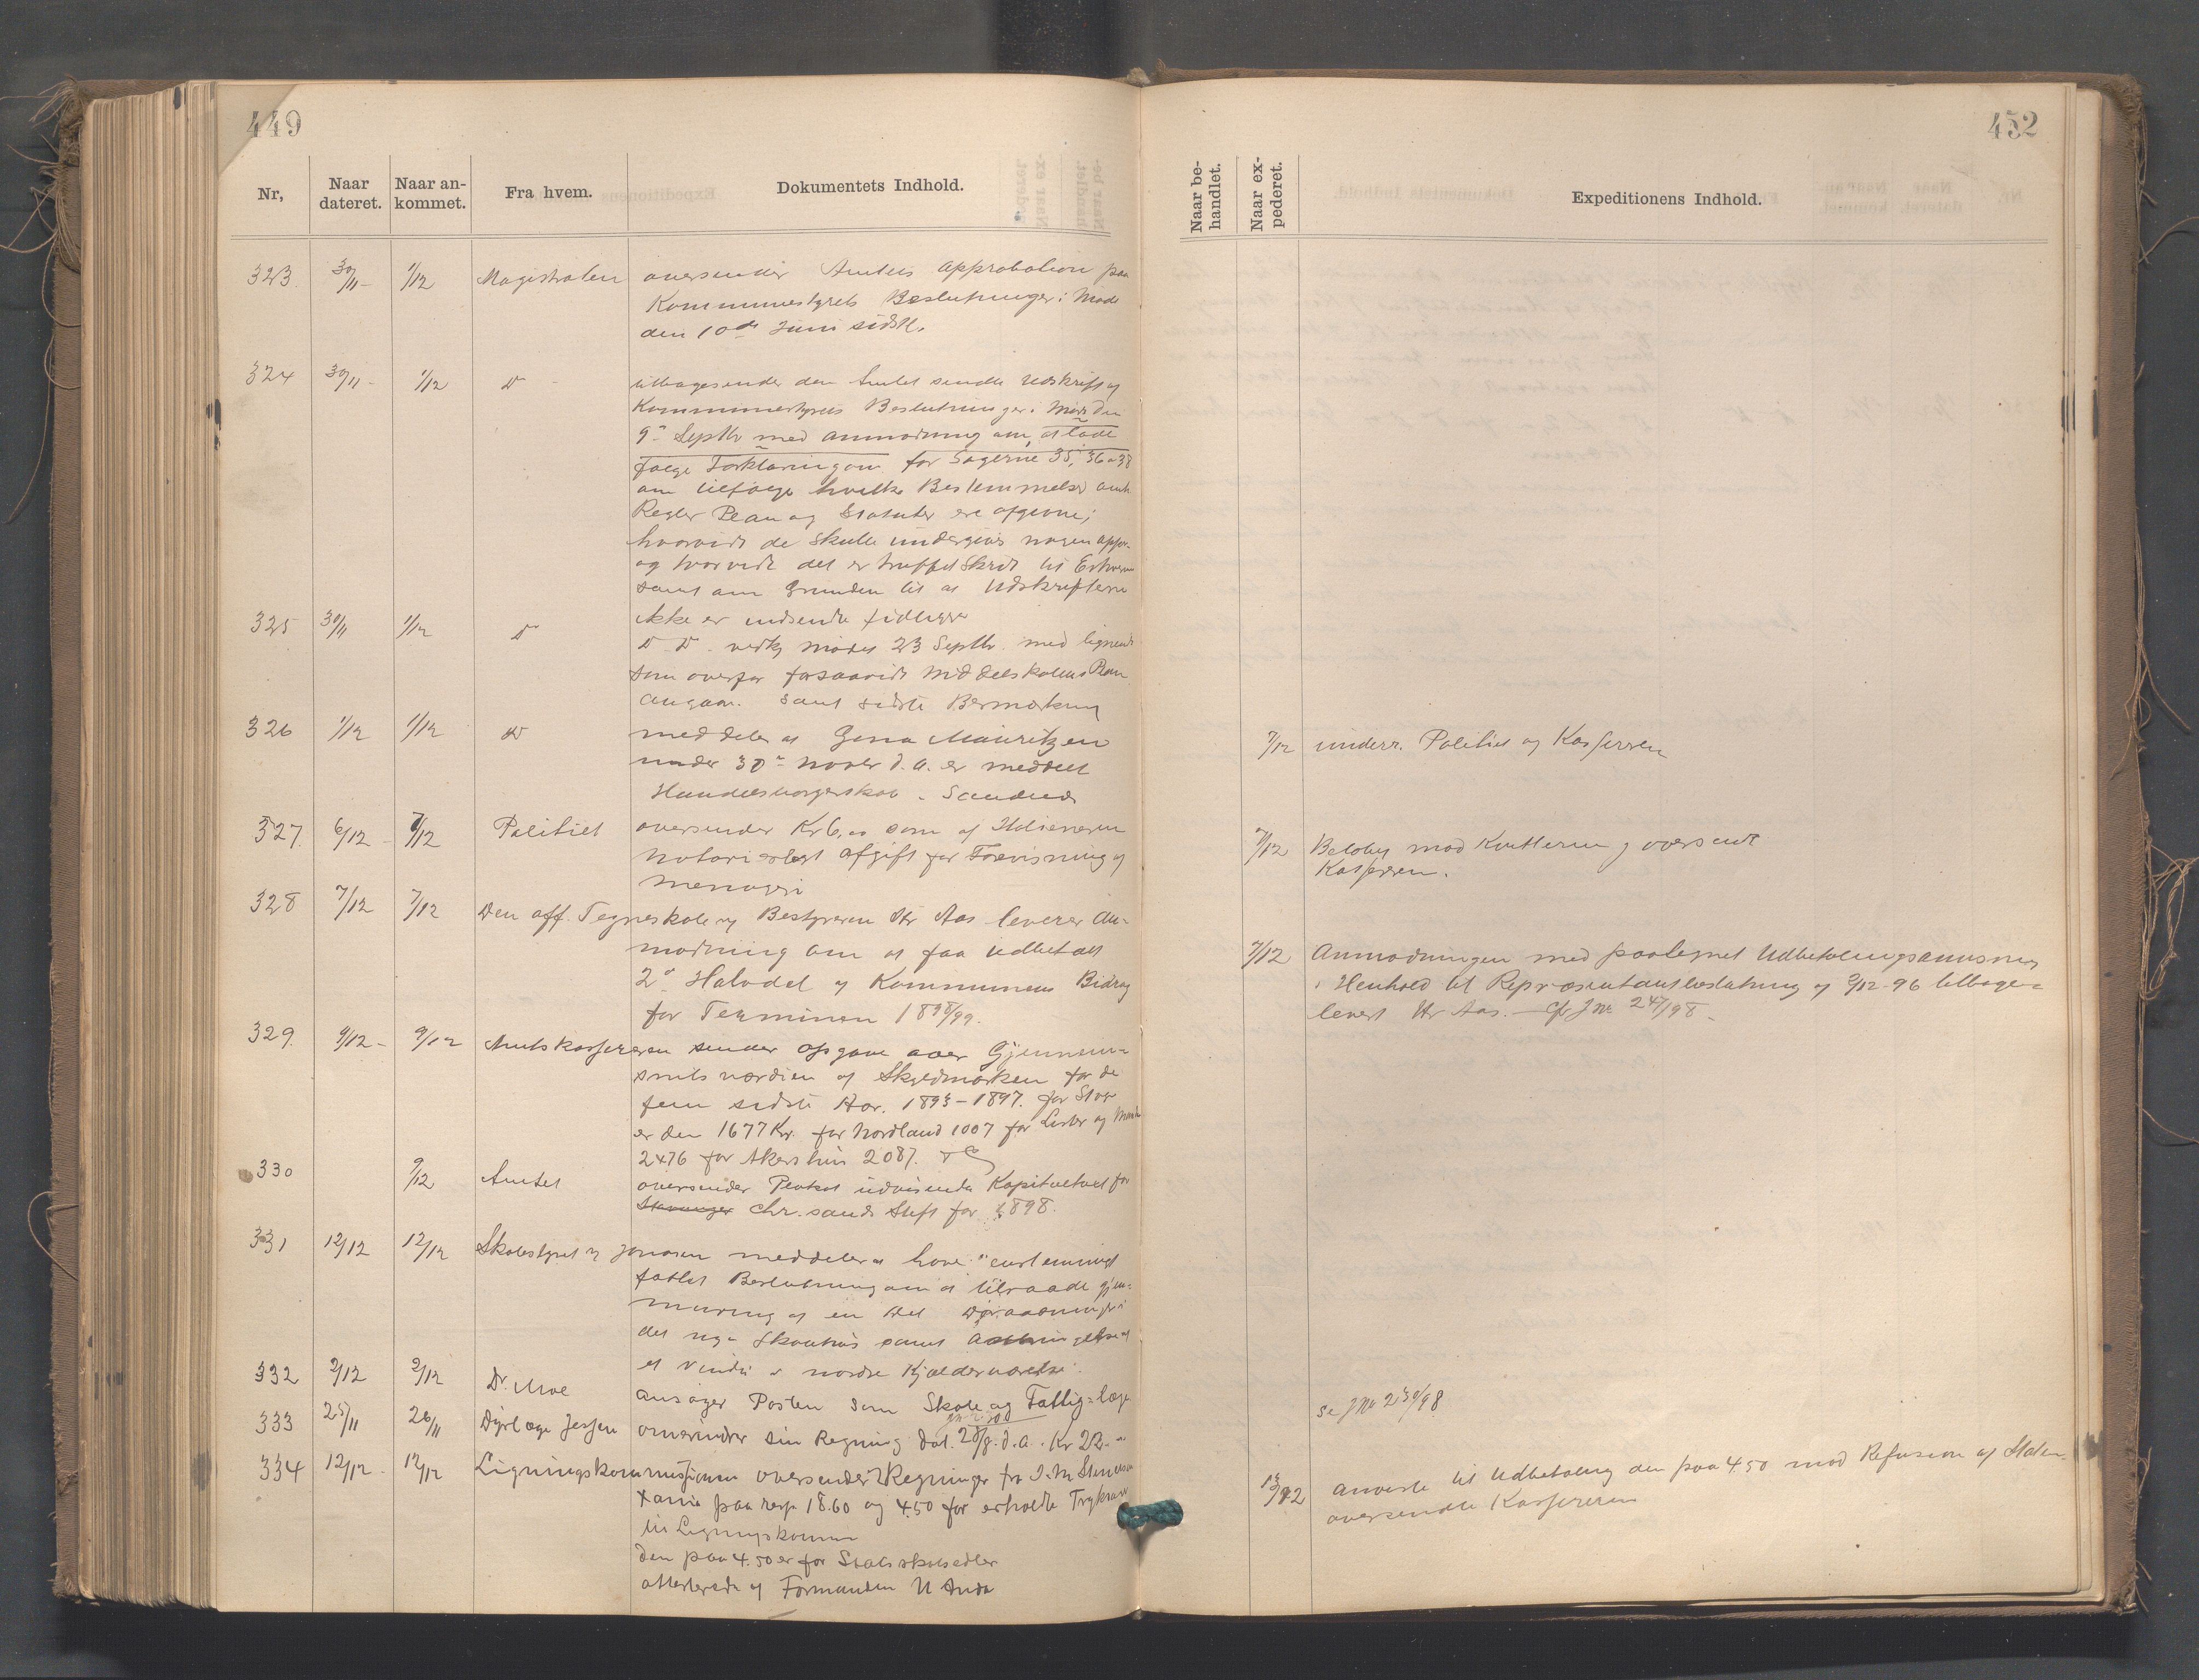 449
Nr,
Naar dateret.
Naar an-kommet.
Fra hvem.
Dokumentets Indhold.
323. 30/11 - 1/12 Magistraten oversender Amtets Approbation paa
Kommunestyrets Beslutninger i Møde
den 10de Juni sidstl.
324 30/11 - 1/12 D
tilbagesender den Amtet sendte Udskrift af
Kommunestyrets Beslutninger i Møde den
9de Septbr med anmodning om at lade
følge Forklaring om for Sagerne 35, 36 o 38
om tilfølge hvilke Bestemmelser
Regler Plan og Statuter ere afgivne;
hvorvidt de skulle undergives nogen appr.
og hvorvidt det er truffet Skridt til
samt om Grunden til at Udskrifterne
ikke er indsendte tidligere
325 30/11 1/12 D
D D vedk mødet 23 Septbr. med lignende
som ovenfor forsaavidt Middelskolens Plan
angaar. samt sidste Bemærkning
326 1/12 1/12 D meddeler at Gina Mauritzen
under 30te Novbr d.a. er meddelt
Handelsborgerskab - Sandnes
327. 6/12 - 7/12 Politiet oversender Kr 6,00 som af Italieneren
Notari erlagt afgift for Forevisning af
menageri
328 7/12 7/12 Den off. Tegneskole v Bestyreren Hr Aas leverer An-
modning om at faa udbetalt
2den Halvdel af Kommunens Bidrag
for Terminen 1898/99.
329. 9/12 - 9/12 Amtskassereren sender Opgave over Gjennem-
snitsværdien af Skyldmarken for de
fem sidste Aar. 1893-1897. for Stav
er den 1677 Kr. for Nordland 1007 for Lister og Mandal
2476 for Akershus 2087.
330 9/12 Amtet oversender Plakat udvisende Kapiteltaxt for
Stavanger Chr.sands Stift for 1898.
331 12/12 12/12 Skolestyret v Jonasen meddeler at have "enstemmigt
fattet Beslutning om at tilraade gjen-
muring af en Del Døraabninger i
det nye Skolehus samt
et Vindu i nordre Kjælderværelse.
332 2/12 2/12 Dr. Moe
ansøger Posten som Skole og Fattig=læge
333 25/11 26/11 Dyrlæge Jessen omsender sin Regning dat. 28/8. d.a. Kr 22.-
334 12/12 - 12/12 Ligningskommissionen oversender 2 Regninger fra J.M. Stenersen
Xania paa resp 18.60 og 4.50 for erholdte Tryksager
til Ligningskomm
den paa 4.50 er for Statsskatsedler
attesterede af Formanden N Anda
452
Naar be-handlet.
Naar ex-pederet.
Expeditionens Indhold.
7/12 underr. Politiet og Kassereren
7/12 Beløbet mod Kvittering oversendt
Kassereren.
7/12 Anmodningen med paategnet Udbetalingsanvisning
i Henhold til Repræsentantbeslutning af 9/12 96 tilbage=
levert Hr Aas. - Cfr J No 247/98 -
se J No 230/98
13/12 anviste til Udbetaling den paa 4.50 mod Refusion af Staten
oversendte Kassereren